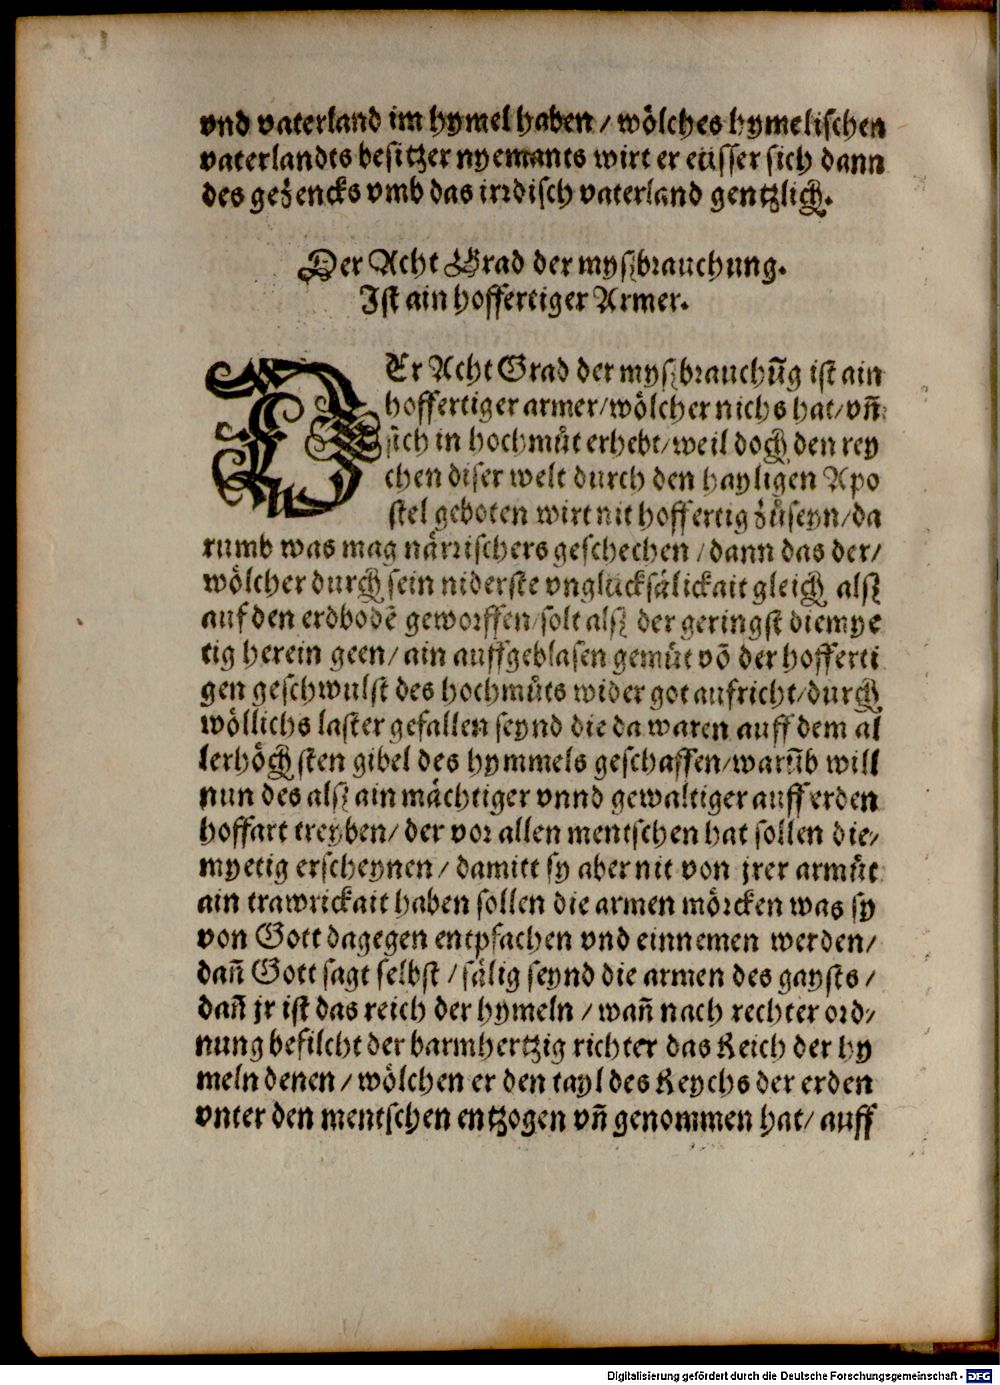 vnd vaterland im hymel haben / wölches hymelischen
vaterlandts besitzer nyemants wirt er eüsser sich dann
des gezencks vmb das irrdisch vaterland gentzlich.
Der Acht Grad der myszbrauchung.
Ist ain hoffertiger Armer.
DEr Acht Grad der myszbrauchūg ist ain
hoffertiger armer/wölcher nichs hat/vñ
sich in hochmůt erhebt/weil doch den rey
chen diser welt durch den hayligen Apo
stel geboten wirt nit hoffertig zůseyn/da
rumb was mag närrischers geschechen / dann das der/
wölcher durch sein niderste vnglücksälickait gleich alsz
auf den erdbodē geworffen/solt alsz der geringst diemye
tig herein geen/ ain auffgeblasen gemůt vō der hofferti
gen geschwulst des hochmůts wider got aufricht/durch
wöllichs laster gefallen seynd die da waren auff dem al
lerhöchsten gibel des hymmels geschaffen/warūb will
nun des alsz ain mächtiger vnnd gewaltiger auff erden
hoffart treyben/ der vor allen mentschen hat sollen die/
myetig erscheynen / damitt sy aber nit von jrer armůt
ain trawrickait haben sollen die armen mörcken was sy
von Gott dagegen entpfachen vnd einnemen werden/
dañ Gott sagt selbst / sälig seynd die armen des gaysts /
dañ jr ist das reich der hymeln / wañ nach rechter ord/
nung befilcht der barmhertzig richter das Reich der hy
meln denen / wölchen er den tayl des Reychs der erden
vnter den mentschen entzogen vñ genommen hat/ auff
Digitalisierung gefördert durch die Deutsche Forschungsgemeinschaft - DFG